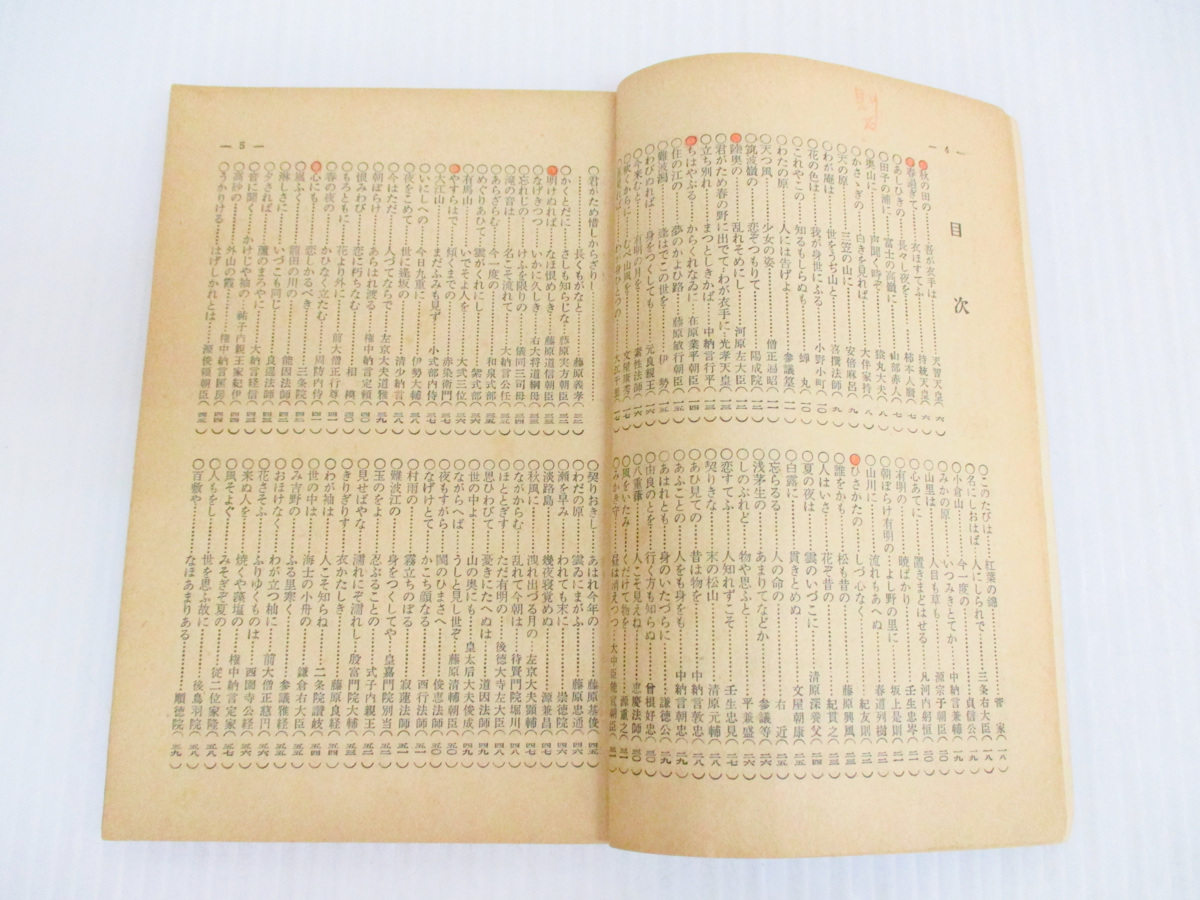 — 4 —
目次
○秋の田の 吾が衣手は……天智天皇(六)
○春過ぎて 衣ほすてふ……持統天皇(六)
○あしびきの 長々し夜を……柿本人麿(七)
○田子の浦に 富士の高嶺に……山部赤人(七)
○奥山に 声聞く時ぞ……猿丸大夫(八)
○かさゝぎの 白きを見れば……大伴家持(八)
○天の原 三笠の山に……安倍麻呂(九)
○わが庵は 世をうぢ山と……喜撰法師(九)
○花の色は 我が身世にふる……小野小町(一〇)
○これやこの 知るもしらぬも……蝉丸(一〇)
○わたの原 人には告げよ……参議篁(一一)
○天つ風 少女の姿……僧正遍昭(一一)
○筑波嶺の 恋ぞつもりて……陽成院(一二)
○陸奥の 乱れそめにし……河原左大臣(一二)
○君がため春の野に出でて…わが衣手に…光孝天皇(一三)
○立ち別れ まつとしきかば……中納言行平(一三)
○ちはやぶる からくれなゐに……在原業平朝臣(一四)
○住の江の 夢のかよひ路……藤原敏行朝臣(一四)
○難波潟 逢はでこの世を……伊勢
○わびぬれば 身をつくしても……元良親王
○今来むと 有明の月を……素性法師(一六)
○吹くからに むべ山風を……文屋康秀
○このたびは 紅葉の錦……菅家(一八)
○名にしおはば 人にしられで……三条右大臣(一八)
○小倉山 今一度の……貞信公(一九)
○みかの原 いつみきとてか……中納言兼輔(一九)
○山里は 人目も草も……源宗于朝臣(二〇)
○心あてに 置きまどはせる……凡河内躬恒(二〇)
○有明の 暁ばかり……壬生忠岑(二一)
○朝ぼらけ有明の…よし野の里に……坂上是則(二一)
○山川に 流れもあへぬ……春道列樹(二二)
○ひさかたの しづ心なく……紀友則(二二)
○誰をかも 松も昔の……藤原興風(二三)
○人はいさ 花ぞ昔の……紀貫之(二三)
○夏の夜は 雲のいづこに……清原深養父(二四)
○白露に 貫きとめぬ……文屋朝康(二五)
○忘らるる 人の命の……右近(二五)
○浅茅生の あまりてなどか……参議等(二六)
○しのぶれど 物や思ふと……平兼盛(二六)
○恋すてふ 人知れずこそ……壬生忠見(二七)
○契りきな 末の松山……清原元輔(二七)
○あひ見ての 昔は物を……中納言敦忠(二八)
○あふことの 人をも身をも……中納言朝忠(二八)
○あはれとも 身のいたづらに……謙徳公(二九)
○由良のとを 行く方も知らぬ……曾根好忠
○八重葎 人こそ見えね……恵慶法師(三〇)
○風をいたみ くだけて物を……源重之
○みかき守 昼は消えつつ……大中臣能宣朝臣
— 5 —
○君がため惜しからざり!……藤原義孝(三二)
長くもがなと
○かくとだに さしも知らじな……藤原実方朝臣(三二)
○明けぬれば なほ恨めしき……藤原道信朝臣(三三)
○なげきつつ いかに久しき……右大将道綱母(三三)
○忘れじの けふを限りの……儀同三司母(三四)
○滝の音は 名こそ流れて……大納言公任(三四)
○あらざらむ 今一度の……和泉式部(三五)
○めぐりあひて 雲がくれにし……紫式部(三五)
○有馬山 いでそよ人を……大弐三位(三六)
○やすらはで 傾くまでの……赤染衛門(三六)
○大江山 まだふみも見ず……小式部内侍(三七)
○いにしへの 今日九重に……伊勢大輔(三七)
○夜をこめて 世に逢坂の……清少納言(三八)
○今はただ 人づてならで……左京大夫道雅(三八)
○朝ぼらけ あらはれ渡る……権中納言定頼
○恨みわび 恋に朽ちなむ……相模(四〇)
○もろともに 花より外に……前大僧正行尊
○春の夜の かひなく立たむ……周防内侍(四一)
○心にも 恋しかるべき……三条院
○嵐ふく 龍田の川の……能因法師
○淋しさに いづこも同じ……良暹法師
○夕されば 蘆のまろやに……大納言経信
○音に聞く かけじや袖の…祐子内親王家紀伊
○高砂の 外山の霞……権中納言匡房
○うかりける はげしかれとは……源俊頼朝臣(四五)
○契りおきし あはれ今年の……藤原基俊(四五)
○わだの原 雲ゐにまがふ……藤原忠通(四六)
○瀬を早み われても末に……崇徳院(四六)
○淡路島 幾夜寝覚めぬ……源兼昌(四七)
○秋風に 洩れ出づる月の……左京大夫顕輔(四七)
○ながからむ 乱れて今朝は……待賢門院堀川(四八)
○ほととぎす ただ有明の……後徳大寺左大臣(四八)
○思ひわびて 憂きにたへぬは……道因法師(四九)
○世の中よ 山の奥にも……皇太后大夫俊成(四九)
○ながらへば うしと見し世ぞ…藤原清輔朝臣(五〇)
○夜もすがら 閨のひまさへ……俊恵法師(五〇)
○なげけとて かこち顔なる……西行法師(五一)
○村雨の 霧立ちのぼる……寂蓮法師(五一)
○難波江の 身をつくしてや……皇嘉門院別当(五二)
○玉のをよ 忍ぶることの……式子内親王(五二)
○見せばやな 濡れにぞ濡れし…殷富門院大輔(五三)
○きりぎりす 衣かたしき……藤原良経(五三)
○わが袖は 人こそ知らね……二条院讃岐(五四)
○世の中は 海士の小舟の……鎌倉右大臣(五四)
○み吉野の ふる里寒く……参議雅経(五五)
○おほけなく わが立つ杣に……前大僧正慈円(五五)
○花さそふ ふりゆくものは……西園寺公経(五六)
○来ぬ人を 焼くや藻塩の……権中納言定家(五七)
○風そよぐ みそぎぞ夏の……従二位家隆(五七)
○人もをし 世を思ふ故に……後鳥羽院(五八)
○百敷や なほあまりある……順徳院(五九)